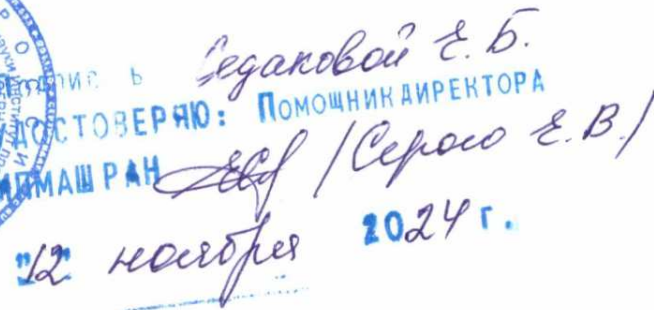 подпись Седаковой Е. Б.
УДОСТОВЕРЯЮ: ПОМОЩНИК ДИРЕКТОРА
ИПМАШ РАН / Серого Е. В./
"12" ноября 2024 г.